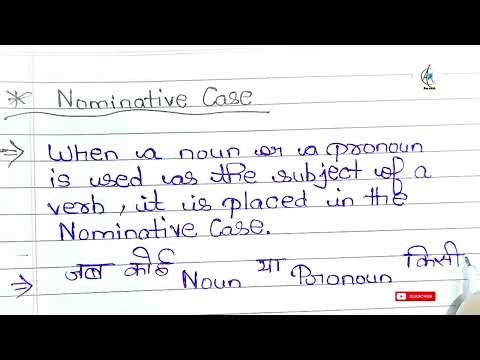 * Nominative Case
⇒ When a noun or a pronoun
is used as the subject of a
verb, it is placed in the
Nominative Case.
⇒ जब कोई Noun या Pronoun किसी
SUBSCRIBE